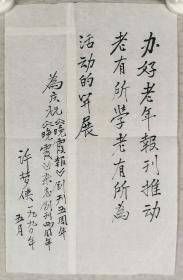 办好老年報刊推动
老有所学老有所为
活动的开展
為庆祝《晚霞报》创刊五周年
《晚霞》杂志创刊四周年
许梦侠
一九九〇年
五月